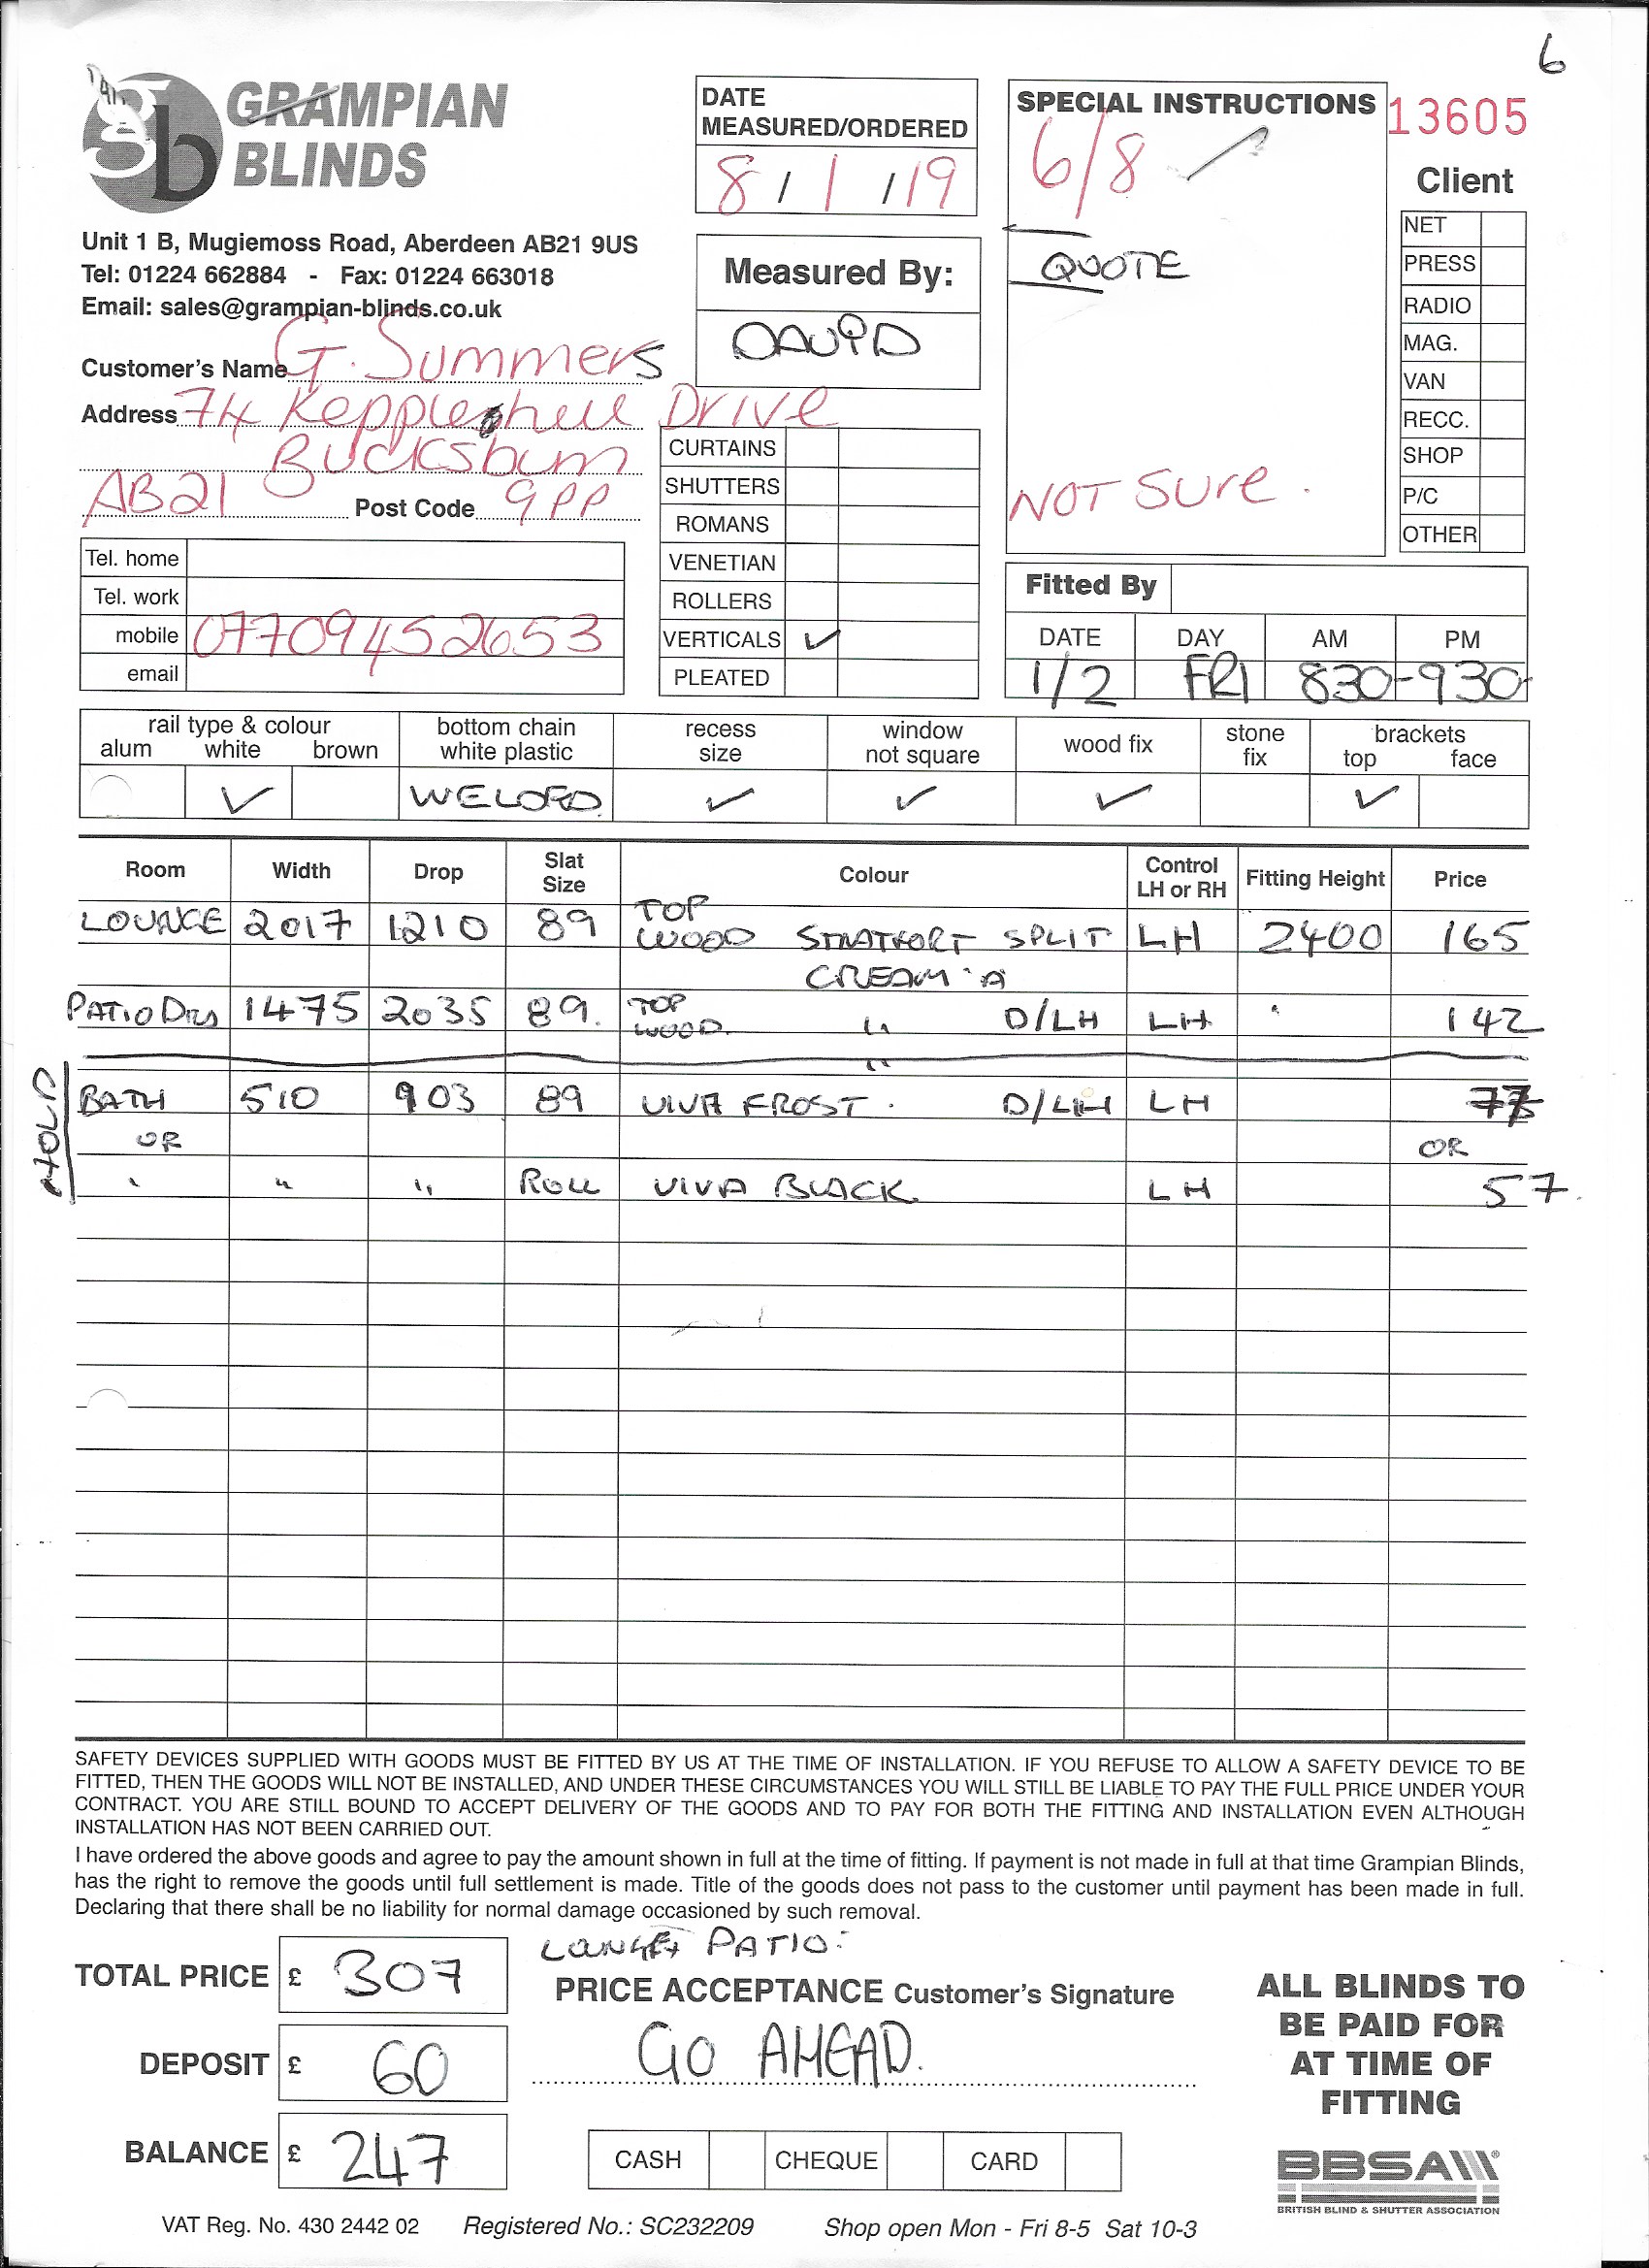 6
GRAMPIAN
BLINDS
Unit 1 B, Mugiemoss Road, Aberdeen AB21 9US
Tel: 01224 662884 - Fax: 01224 663018
Email: sales@grampian-blinds.co.uk
DATE
MEASURED/ORDERED
8/1/19
Measured By:
DAVID
SPECIAL INSTRUCTIONS
6/8
QUOTE
NOT Sure.
13605
Client
NET
PRESS
RADIO
MAG.
VAN
RECC.
SHOP
P/C
OTHER
Customer's Name G. Summers
Address 74 Kepplehill Drive
Bucksburn
AB21 Post Code 9PP
Tel. home
Tel. work
mobile 07709452653
email
CURTAINS
SHUTTERS
ROMANS
VENETIAN
ROLLERS
VERTICALS ✓
PLEATED
Fitted By
DATE DAY AM PM
1/2 FRI 830-930
rail type & colour bottom chain recess window wood fix stone brackets
alum white brown white plastic size not square fix top face
✓ WELDED ✓ ✓ ✓ ✓
Room Width Drop Slat Size Colour Control LH or RH Fitting Height Price
LOUNGE 2017 1210 89 TOP WOOD SPLIT LH 2400 165
CREAM A
PATIO DRS 1475 2035 89. TOP WOOD. " D/LH LH " 142
HOLD
BATH 510 903 89 VIVA FROST. D/LH LH 77
OR OR
" " " ROLL VIVA BLACK LH 57.
SAFETY DEVICES SUPPLIED WITH GOODS MUST BE FITTED BY US AT THE TIME OF INSTALLATION. IF YOU REFUSE TO ALLOW A SAFETY DEVICE TO BE
FITTED, THEN THE GOODS WILL NOT BE INSTALLED, AND UNDER THESE CIRCUMSTANCES YOU WILL STILL BE LIABLE TO PAY THE FULL PRICE UNDER YOUR
CONTRACT. YOU ARE STILL BOUND TO ACCEPT DELIVERY OF THE GOODS AND TO PAY FOR BOTH THE FITTING AND INSTALLATION EVEN ALTHOUGH
INSTALLATION HAS NOT BEEN CARRIED OUT.
I have ordered the above goods and agree to pay the amount shown in full at the time of fitting. If payment is not made in full at that time Grampian Blinds,
has the right to remove the goods until full settlement is made. Title of the goods does not pass to the customer until payment has been made in full.
Declaring that there shall be no liability for normal damage occasioned by such removal.
LOUNGE + PATIO:
TOTAL PRICE £ 307
PRICE ACCEPTANCE Customer's Signature
GO AHEAD.
DEPOSIT £ 60
BALANCE £ 247
CASH CHEQUE CARD
ALL BLINDS TO
BE PAID FOR
AT TIME OF
FITTING
BBSA
BRITISH BLIND & SHUTTER ASSOCIATION
VAT Reg. No. 430 2442 02 Registered No.: SC232209 Shop open Mon - Fri 8-5 Sat 10-3